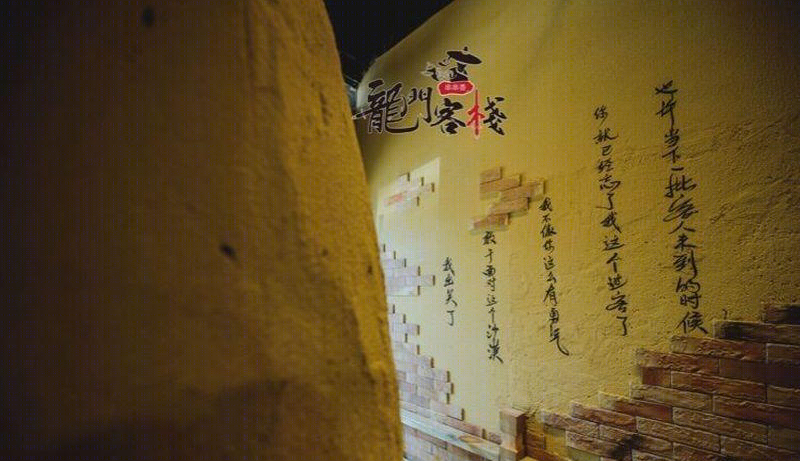 串串香
龍門客棧
也许当下一批客人来到的时候
你就已经忘了我这个过客了
我不像你这么有勇气
敢于面对这个沙漠
我出关了